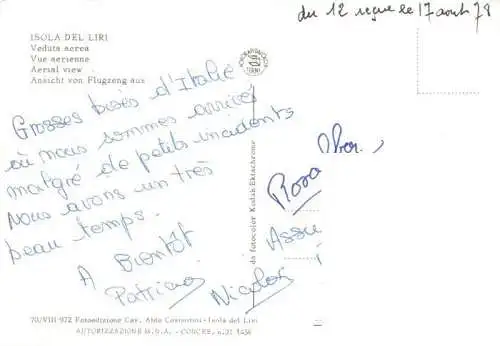 du 12 reçue le 17 aout 78
ISOLA DEL LIRI
Veduta aerea
Vue aerienne
Aerial view
Ansicht von Flugzeug aus
Grosses bises d'Italie
où nous sommes arrivés
malgré de petits incidents
Nous avons un très
beau temps.
A Bientôt
Patricia
Nicolas
Rosa
da fotocolor Kodak Ektachrome
70/VIII-972 Fotoedizione Cav. Aldo Costantini - Isola del Liri
AUTORIZZAZIONE